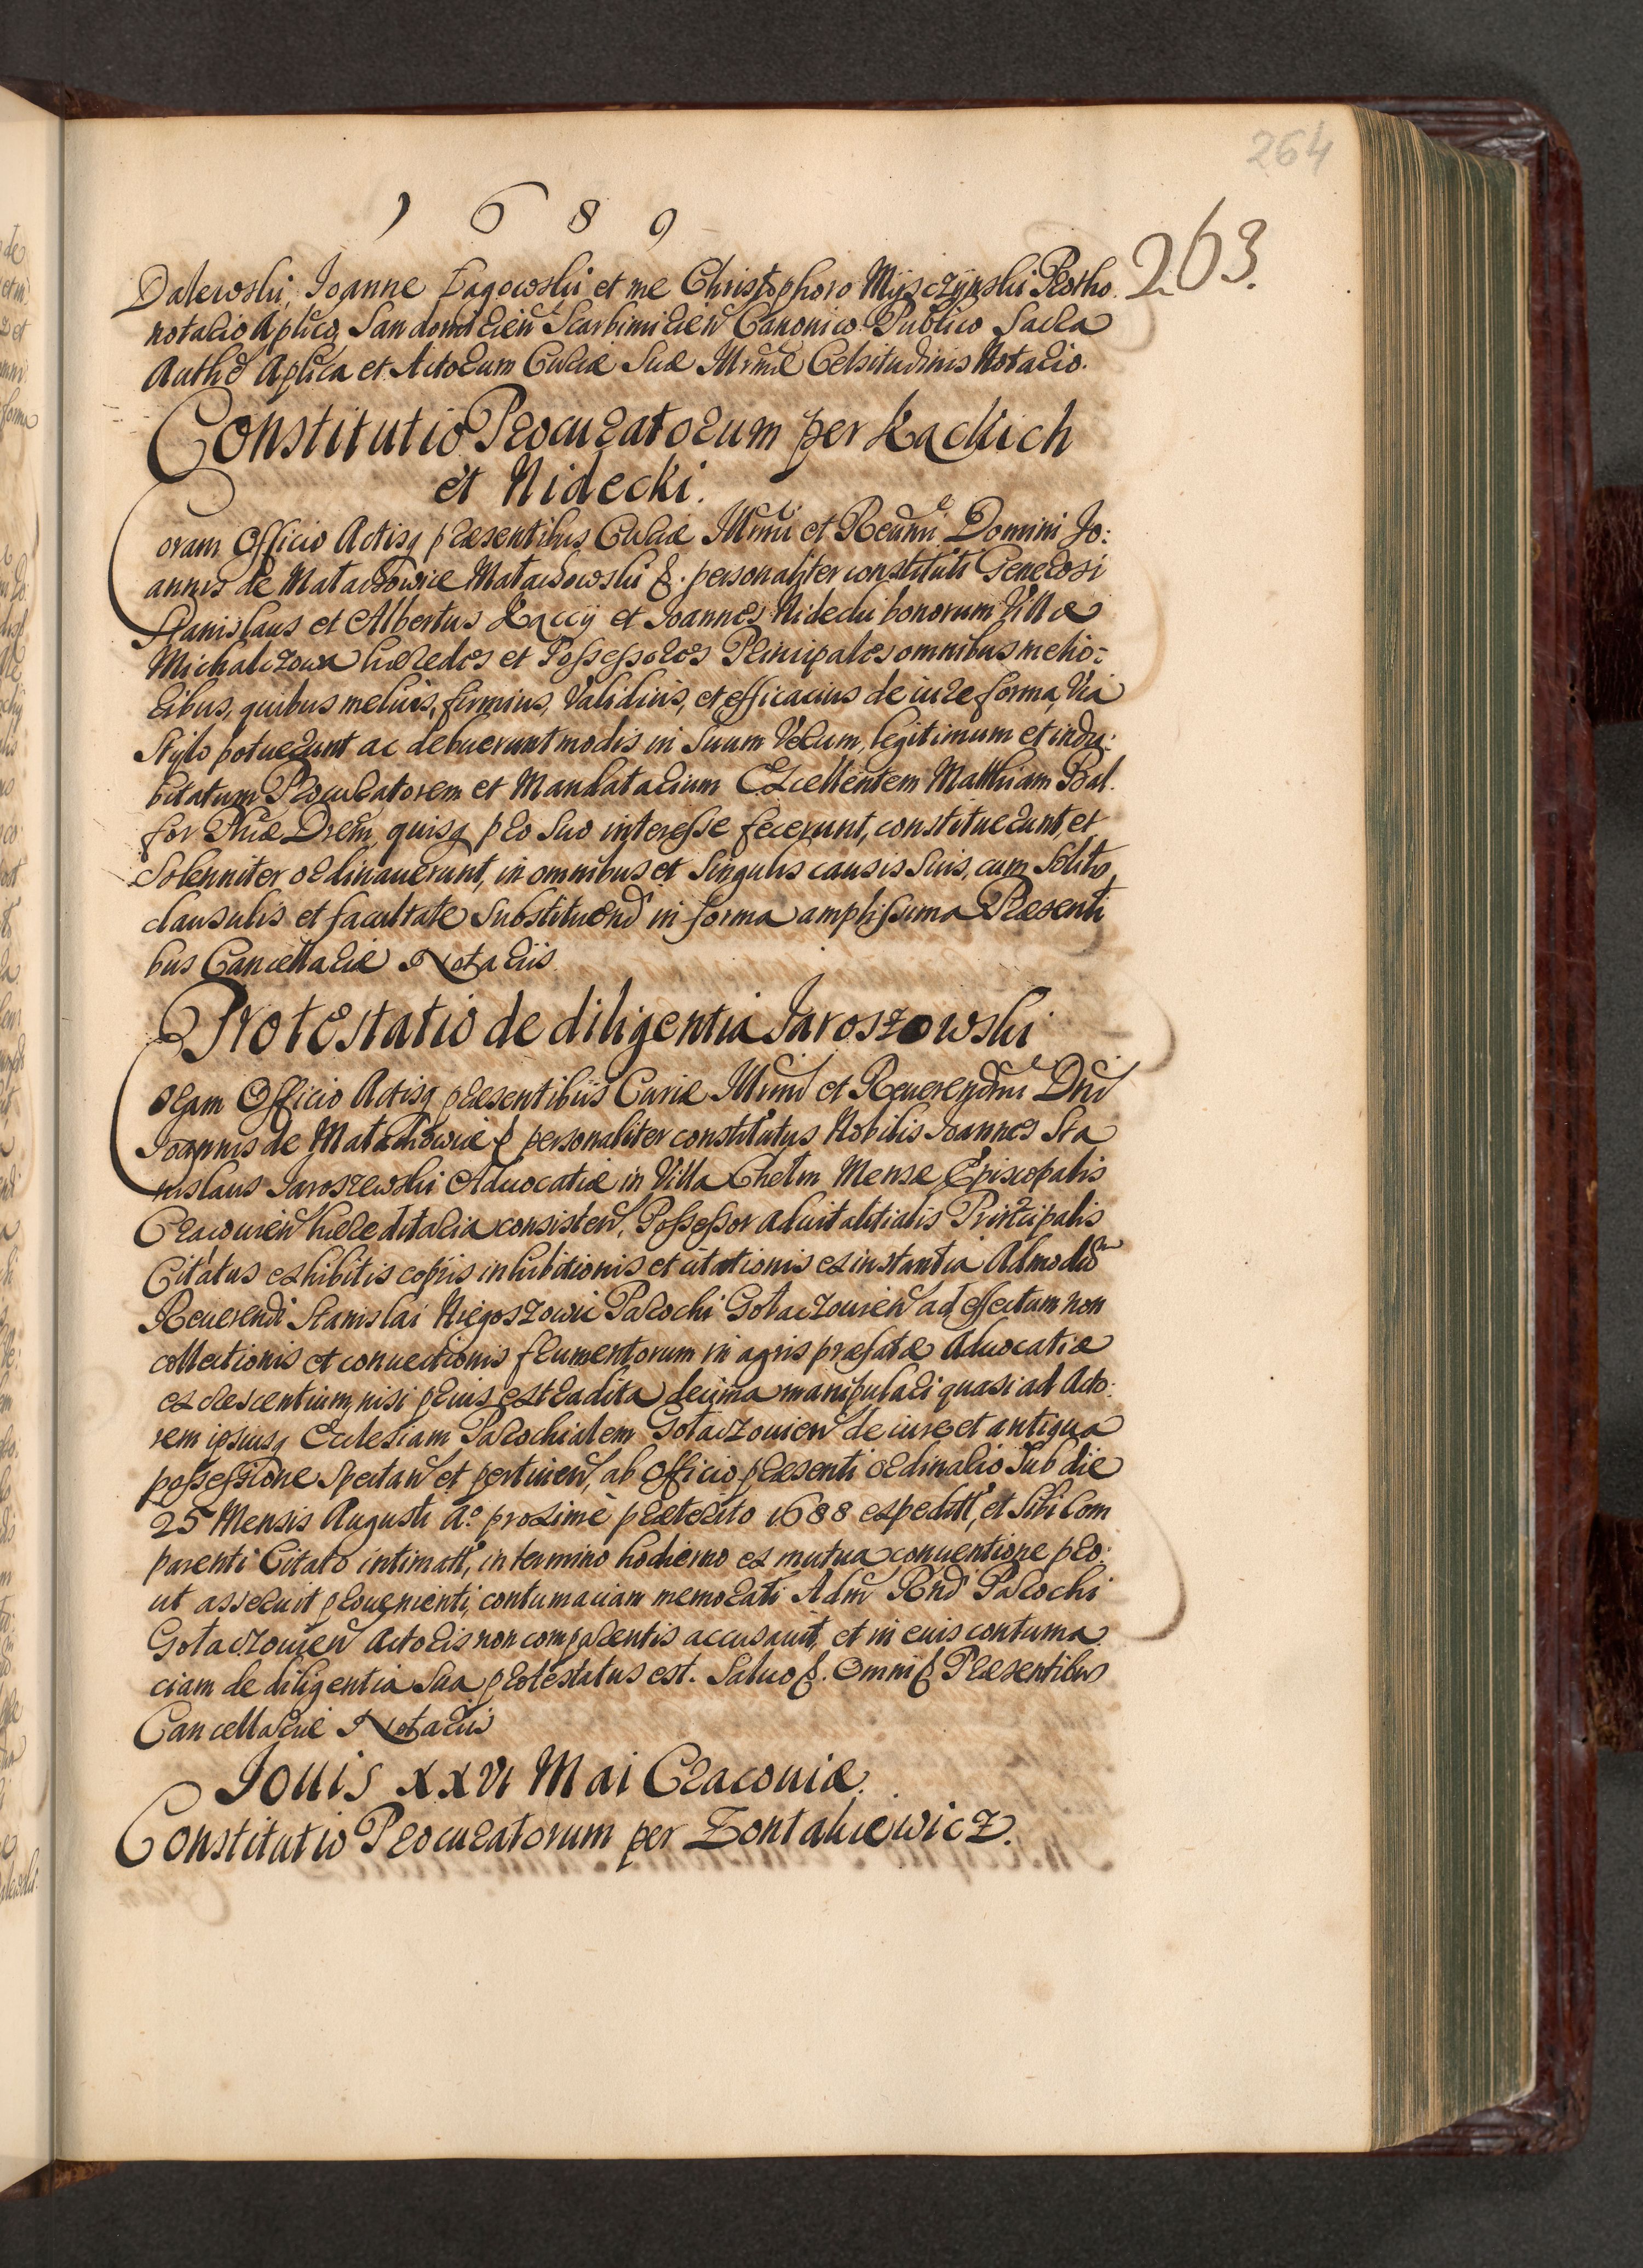 264
1689
263.
Dalewski, Joanne Łagowski et me Christophoro Myszczynski Protho
notario Aplico, Sandomirien Scarbimirien Canonico Publico Sacra
Authe Aplica et Actorum Curiæ Suæ Illrmæ Celsitudinis Notario.
Constitutio Procuratorum per Kackich
et Nidecki.
Coram Officio Actisq præsentibus Curiæ Illrmi et Reverendmi Domini Jo:
annis de Małachowice Małachowski &. personaliter constituti Generosi
Stanislaus et Albertus Kąccy et Joannes Nidecki bonorum Villæ
Michalczowa hæredes et Possessores Principales omnibus melio:
ribus, quibus melius, firmius, validius, et efficacius de iure forma, via
Stylo potuerunt ac debuerunt modis in Suum Verum, legitimum et indu:
bitatum Procuratorem et Mandatarium Excellentem Matthiam Bal.
for Phiæ Drem, quisq pro suo interesse fecerunt, constituerunt, et
Solenniter ordinauerunt, in omnibus et Singulis causis suis, cum Solitis
clausulis et facultate Substituend in forma amplissima Præsenti
bus Cancellariæ Notariis.
Protestatio de diligentia Jaroszowski
Coram Officio Actisq præsentibus Curiæ Illrmi et Reuerendmi Dni
Joannis de Małachowice & personaliter constitutus Nobilis Joannes Sta
nislaus Jaroszewski Aduocatiæ in Villa Chełm Mensæ Episcopalis
Cracouien hæreditaria consisten, Possessor aduitalitialis Principalis
Citatus exhibitis copiis inhibitionis et citationis ex instantia Admodum
Reuerendi Stanislai Niegoszowic Parochi Gołaczouien ad effectum non
collectionis et conuectionis frumentorum in agris præfatæ Aduocatiæ
excrescentium, nisi prius extradita decima manipulari quasi ad Acto:
rem ipsiusq Ecclesiam Parochialem Gołaczouien de iure et antiqua
possessione Spectan et pertinen, ab Officio præsenti ordinario Sub die
25 Mensis Augusti Ao proxime præterito 1688 expeditt, et sibi Com
parenti Citato intimatt, in termino hodierno ex mutua conuentione pro:
ut asseruit prouenienti, contumaciam memorati Adm Rndi Parochi
Gołaczouien Actoris non comparentis accusauit, et in eius contuma
ciam de diligentia sua protestatus est. Saluo &. Omni & Præsentibus
Cancellariæ Notariis
Jouis XXVI Mai Cracouiæ.
Constitutio Procuratorum per Zontakiewicz.